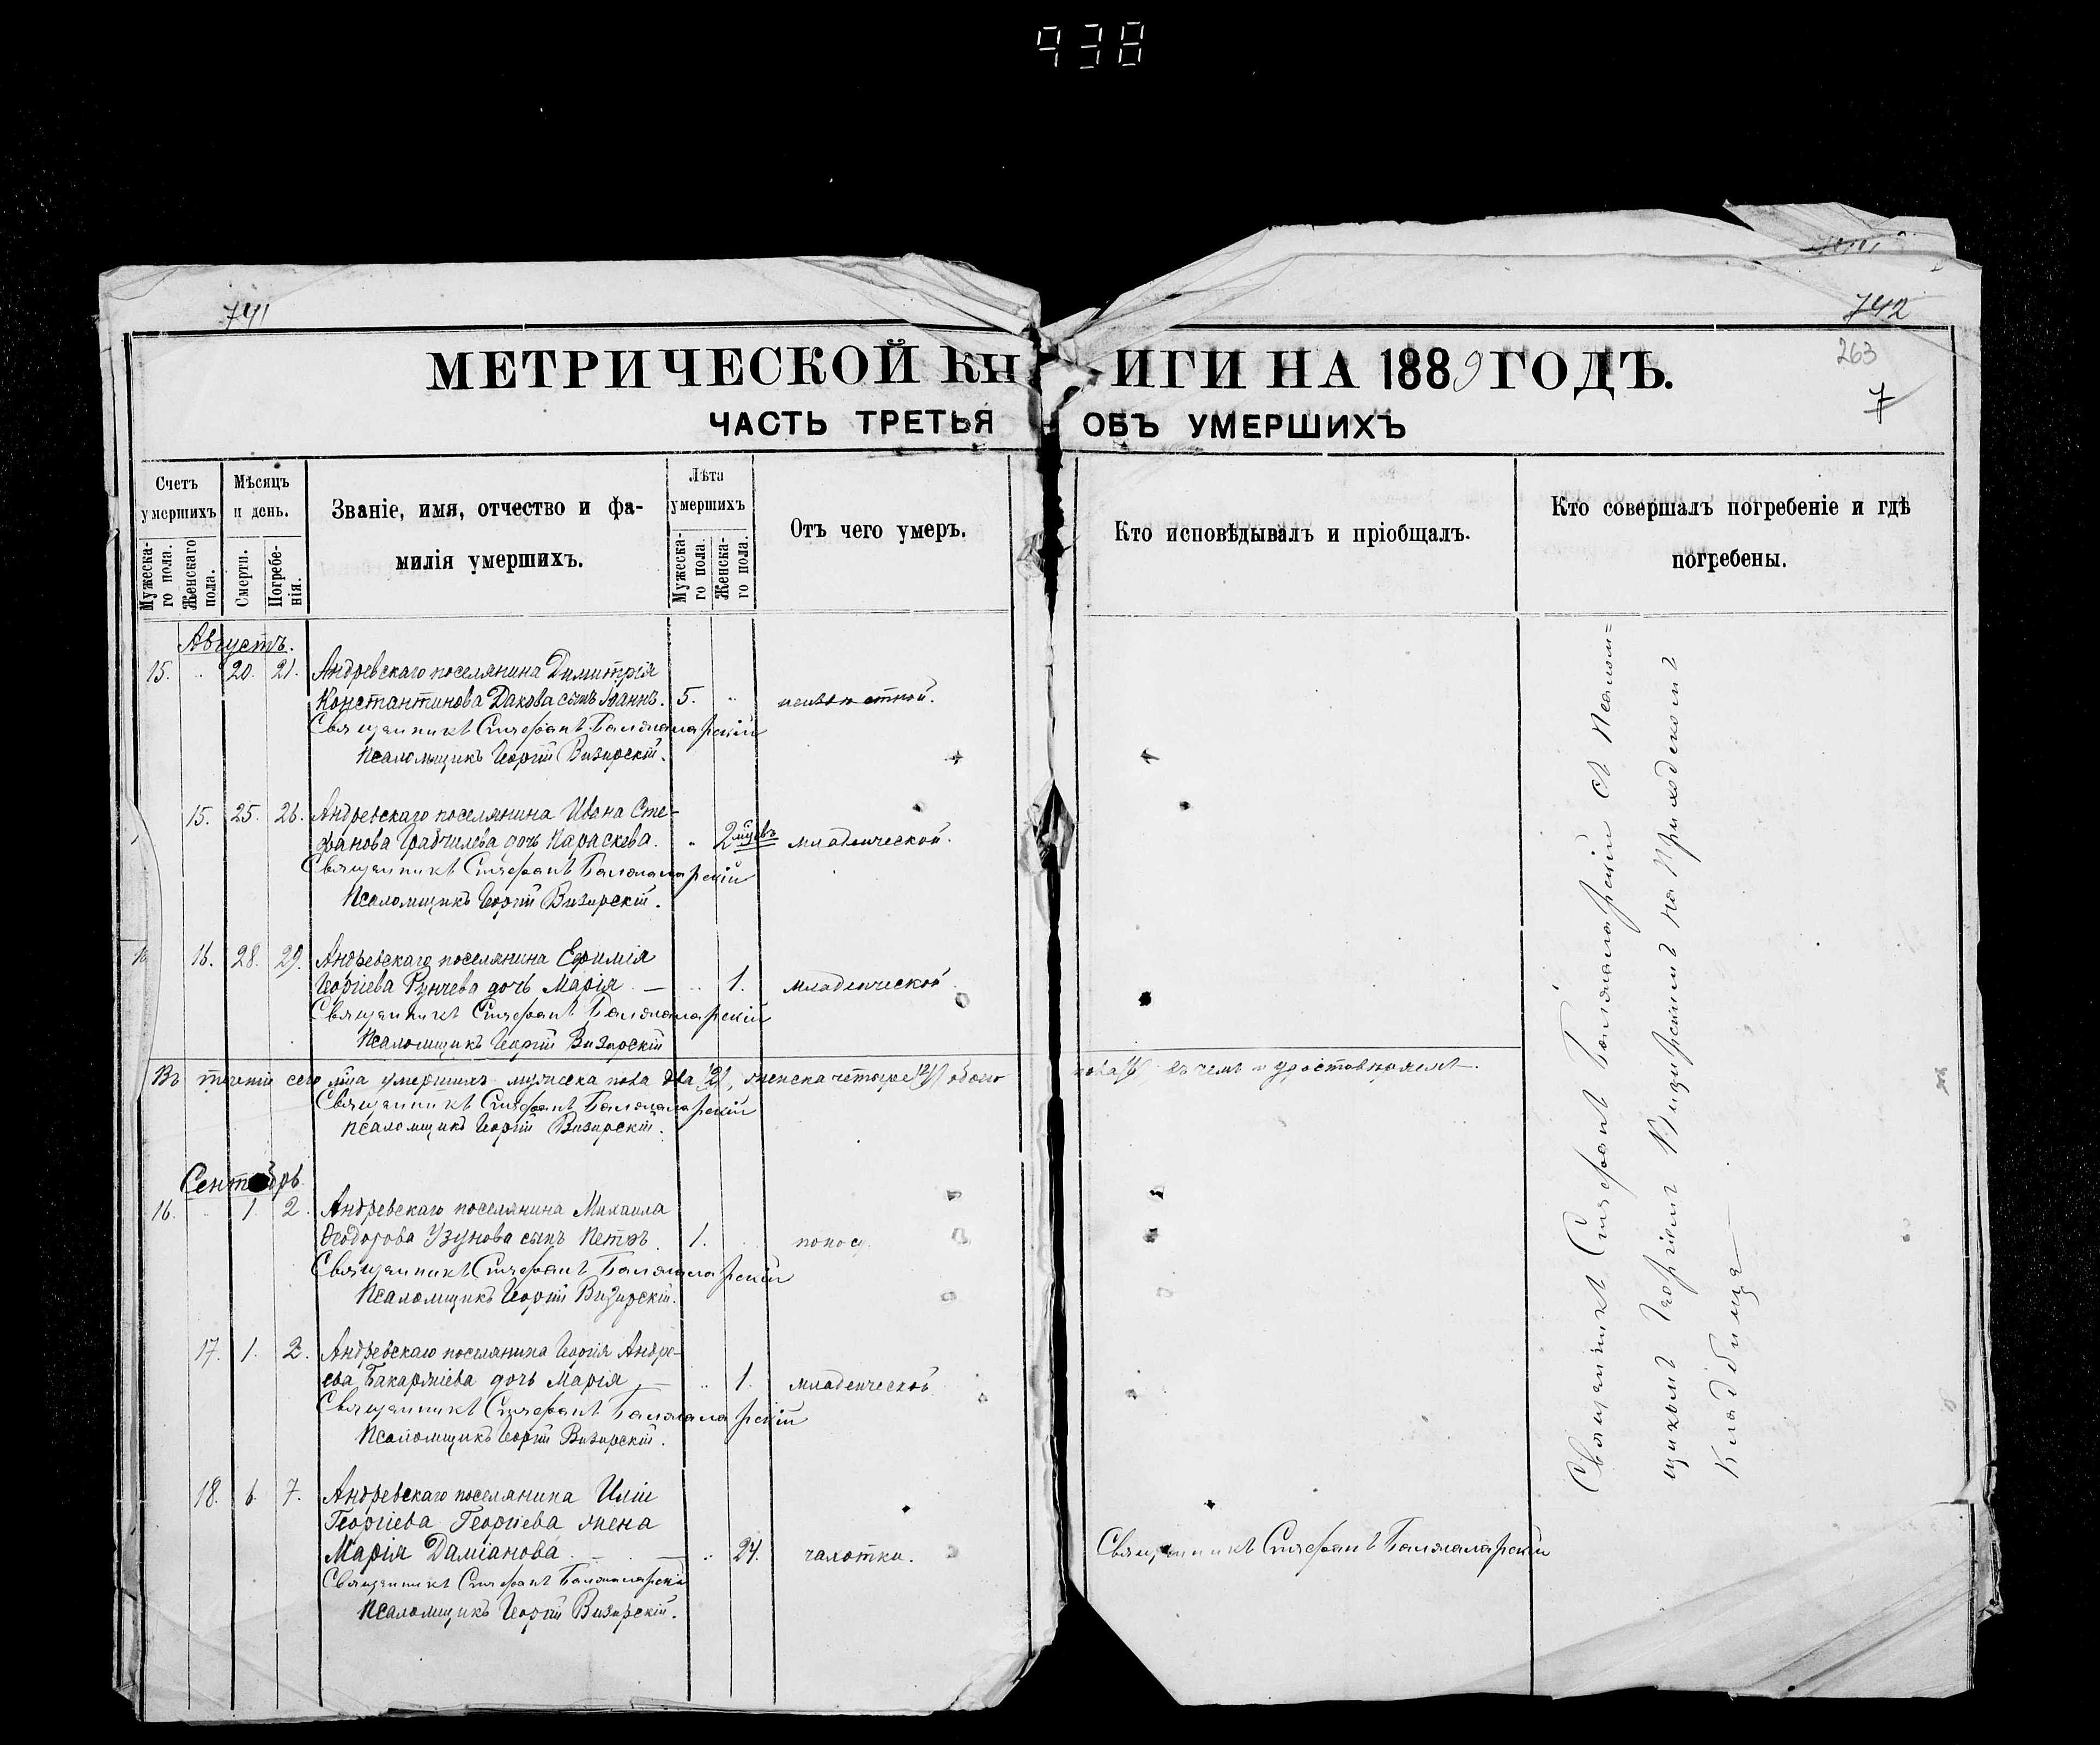 938
741
742
263
7
МЕТРИЧЕСКОЙ КНИГИ НА 1889 ГОДЪ.
ЧАСТЬ ТРЕТЬЯ ОБЪ УМЕРШИХЪ
Счетъ умершихъ
Мужеска-го пола.
Женскаго пола.
Мѣсяцъ и день.
Смерти.
Погребе-нія.
Званіе, имя, отчество и фа-
милія умершихъ.
Лѣта умершихъ
Мужеска-го пола.
Женска-го пола.
Отъ чего умеръ.
Кто исповѣдывалъ и пріобщалъ.
Кто совершалъ погребеніе и гдѣ
погребены.
Августъ.
15. " 20. 21. Андревскаго поселянина Димитрія
Константинова Дакова сынъ Іоаннъ. 5. "
Священникъ Стефанъ Балжаларскій
Псаломщикъ Георгій Визирскій.
15. 25. 26. Андревскаго поселянина Ивана Сте-
фанова дочь Параскева. " 2 мцевъ младенческой.
Священникъ Стефанъ Балжаларскій
Псаломщикъ Георгій Визирскій.
16. 28. 29. Андревскаго поселянина Ефимія
Георгіева Рунчева дочь Марія — " 1. младенческой
Священникъ Стефанъ Балжаларскій
Псаломщикъ Георгій Визирскій
Въ теченіи сего мца умершихъ мужеска пола два /2/, женска четыре /4/ обоего пола /6/ въ чемъ и удостовѣряемъ.
Священникъ Стефанъ Балжаларскій
Псаломщикъ Георгій Визирскій.
Сентябрь
16. " 1. 2. Андревскаго поселянина Михаила
Ѳеодорова Узунова сынъ Петръ. 1. поносу.
Священникъ Стефанъ Балжаларскій
Псаломщикъ Георгій Визирскій.
17. 1. 2. Андревскаго поселянина Георгія Андре-
ева Бакаржіева дочь Марія — " 1. младенческой
Священникъ Стефанъ Балжаларскій
Псаломщикъ Георгій Визирскій.
18. 6. 7. Андревскаго поселянина Иліи
Георгіева Георгіева жена
Марія Даміанова — " 24. чахотки. Священникъ Стефанъ Балжаларскій
Священникъ Стефанъ Балжаларскій
Псаломщикъ Георгій Визирскій.
Священникъ Стефанъ Балжаларскій съ Псалом=
щикомъ Георгіемъ Визирскимъ на Приходскомъ
Кладбищѣ